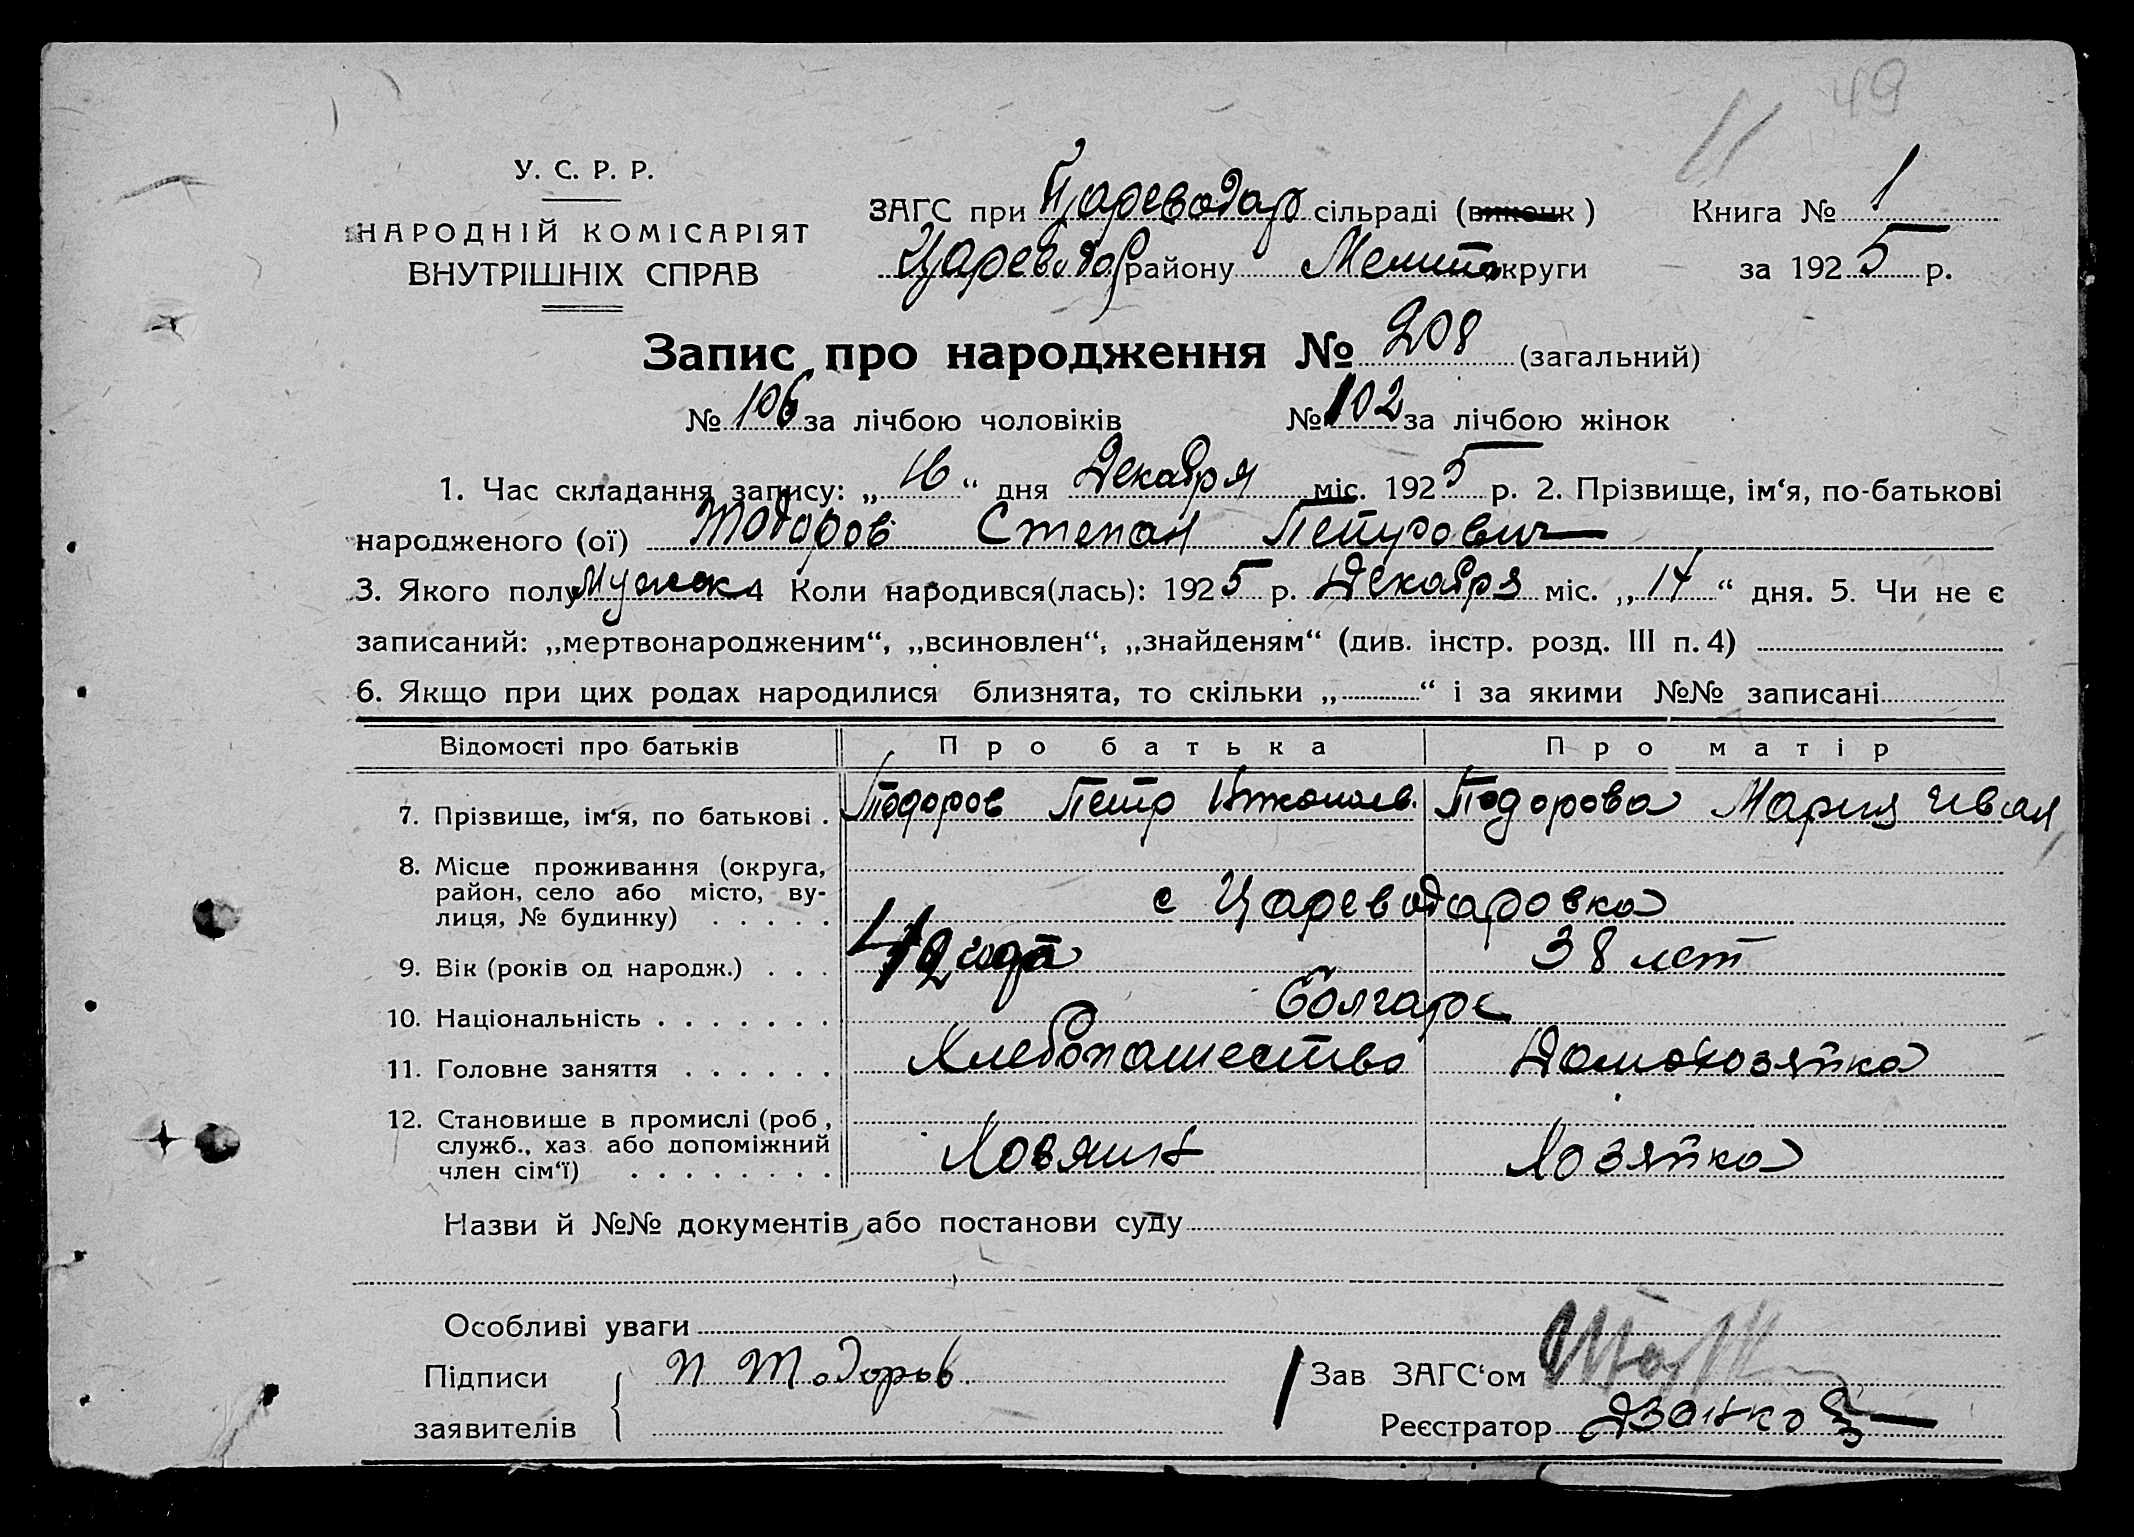 49
У. С. Р. Р.
НАРОДНІЙ КОМІСАРІЯТ
ВНУТРІШНІХ СПРАВ
ЗАГС при Цареводар сільраді (виконк)
Цареводар району Мелит округи
Книга № 1
за 1925 р.
Запис про народження № 208 (загальний)
№ 106 за лічбою чоловіків № 102 за лічбою жінок
1. Час складання запису: „16“ дня Декабря міс. 1925 р. 2. Прізвище, ім‘я, по-батькові
народженого (ої) Тодоров Степан Петрович
3. Якого полу Мужск 4 Коли народився(лась): 1925 р. Декабря міс. „14“ дня. 5. Чи не є
записаний: „мертвонародженим“, „всиновлен“, „знайденям“ (див. інстр. розд. III п. 4)
6. Якщо при цих родах народилися близнята, то скільки „ “ і за якими №№ записані
Відомості про батьків Про батька Про матір
7. Прізвище, ім‘я, по батькові . Тодоров Петр Николаев. Тодорова Мария Иван
8. Місце проживання (округа,
район, село або місто, ву-
лиця, № будинку) . . . . . с Цареводаровка
9. Вік (років од народж.) . . . 42 года 38 лет
10. Національність . . . . . . . болгаре
11. Головне заняття . . . . . . Хлебопашество Домохозяйка
12. Становище в промислі (роб,
служб., хаз. або допоміжний
член сім‘ї) . . . . . . . . Хозяин Хозяйка
Назви й №№ документів або постанови суду
Особливі уваги
Підписи П Тодоров
заявителів
Зав ЗАГС‘ом
Реєстратор